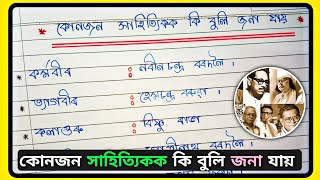 কোনজন সাহিত্যিকক কি বুলি জনা যায়
কৰ্মবীৰ : নবীন চন্দ্ৰ বৰদলৈ ।
ত্যাগবীৰ : হেমচন্দ্ৰ বৰুৱা ।
কলাগুৰু : বিষ্ণু ৰাভা
বৰদলৈ ।
কোনজন সাহিত্যিকক কি বুলি জনা যায়